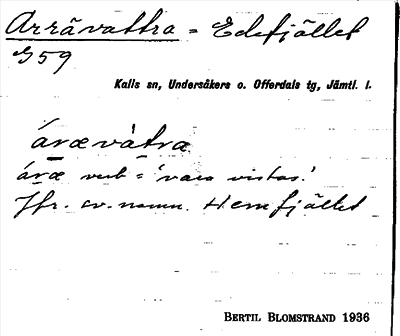 Arrävattra = Edefjället
G59
Kalls sn, Undersåkers o. Offerdals tg, Jämtl. l.
árævàtra
áræ verb = 'vara vistas'
Jfr. sv. namn. Hemfjället
BERTIL BLOMSTRAND 1936